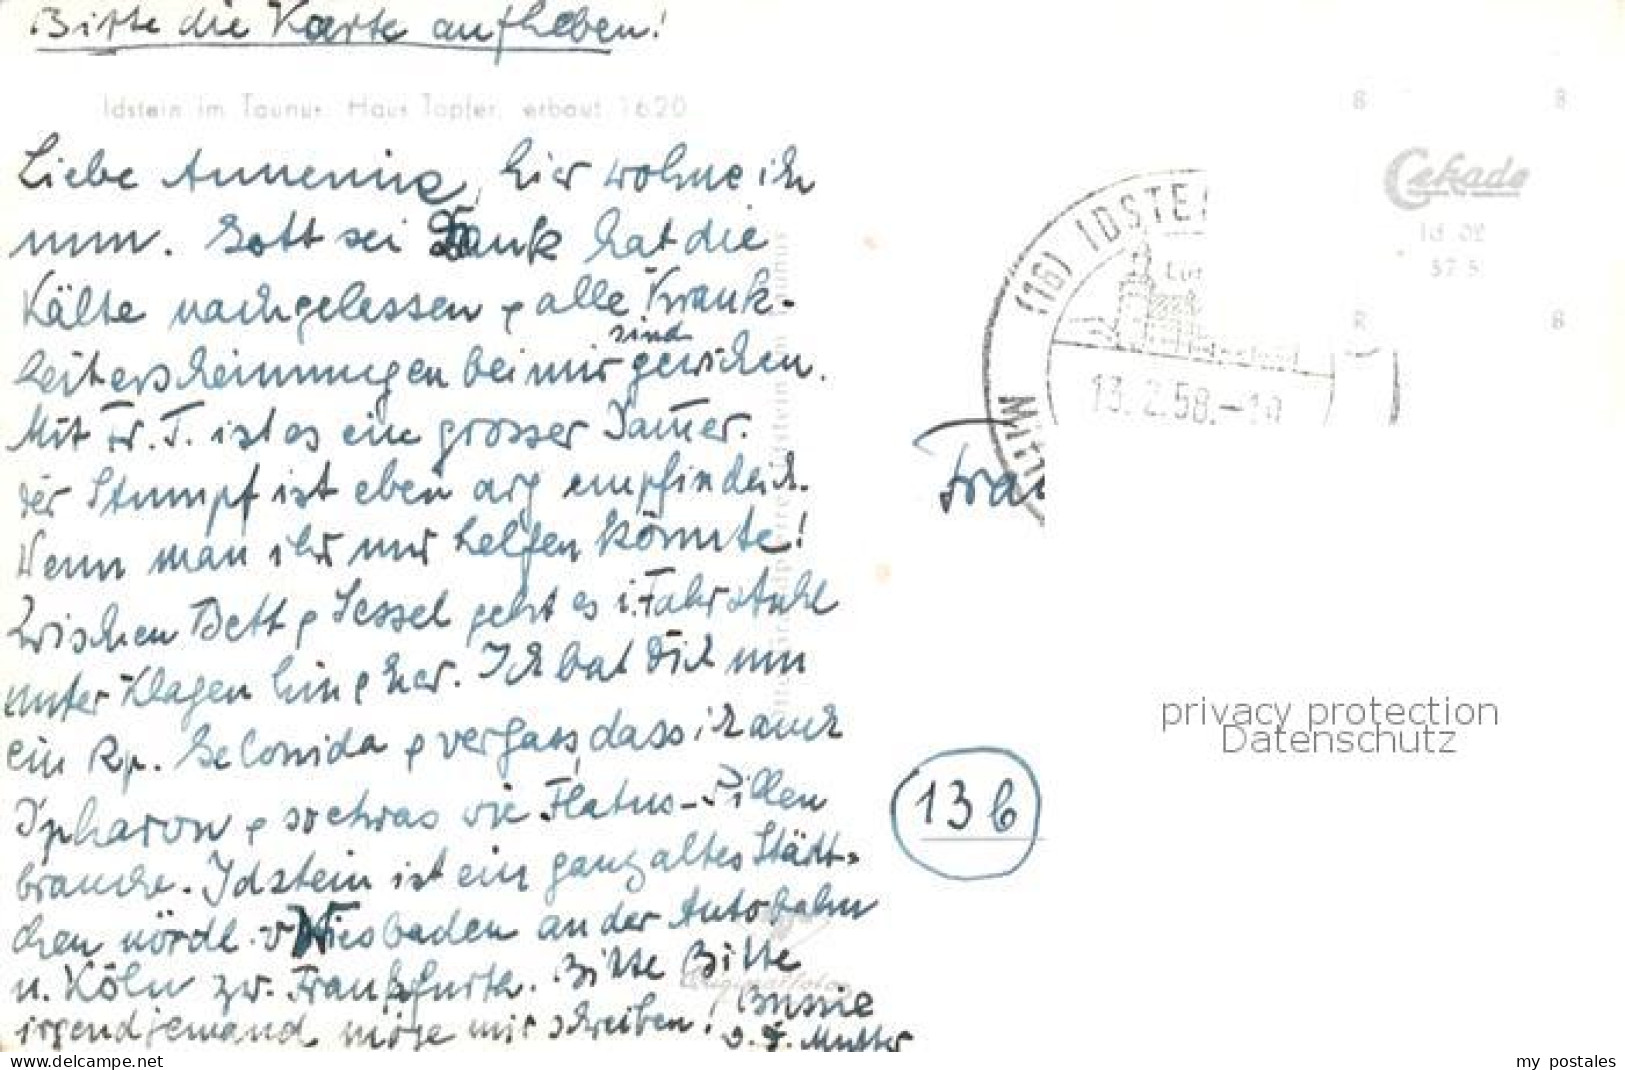 Bitte die Karte aufheben!
Idstein im Taunus. Haus Töpfer, erbaut 1620
Liebe Annemie, hier wohne ich
nun. Gott sei Dank hat die
Kälte nachgelassen & alle Krank-
heitserscheinungen bei mir sind gewichen.
Mit Fr. T. ist es ein grosser Jammer.
der Stumpf ist eben arg empfindlich.
Wenn man ihr nur helfen könnte!
Zwischen Bett & Sessel geht es i. Fahrstuhl
unter Klagen hin & her. Ich bat Dich um
ein Rp. Gelonida & vergass, dass ich auch
Ipharon & so etwas wie Flatus-Pillen
brauche. Idstein ist ein ganz altes Städt-
chen nördl. v Wiesbaden an der Autobahn
n. Köln zw. Frankfurth. Bitte Bitte
irgend jemand möge mir schreiben!
Mutter
(16) IDSTE
13.2.58.-19
Cekade
Id 02
57 5
Frau
13b
privacy protection
Datenschutz
www.delcampe.net
my_postales